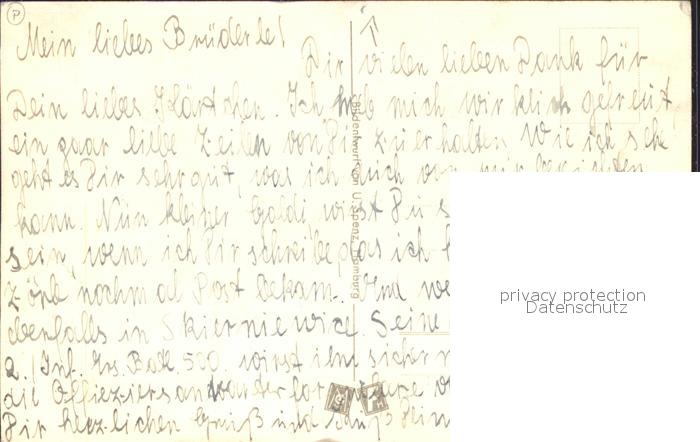 Mein liebes Brüderle!
Dir vielen lieben Dank für
Dein liebes Kärtchen. Ich hab mich wirklich gefreut
ein paar liebe Zeilen von Dir zu erhalten. Wie ich sehe
geht es Dir sehr gut, was ich auch von mir berichten
kann. Nun kleiner Goldi wirst Du
sein, wenn ich Dir schreibe das ich
nochmal Post bekam. Und
ebenfalls in Skierniewice. Seine
2. Inf. Ers. Batl. 500. wirst ihm sicher
die
Dir herzlichen Gruß und Kuß Dein
Bildentwurf von U. Spenz, Hamburg
privacy protection
Datenschutz
P